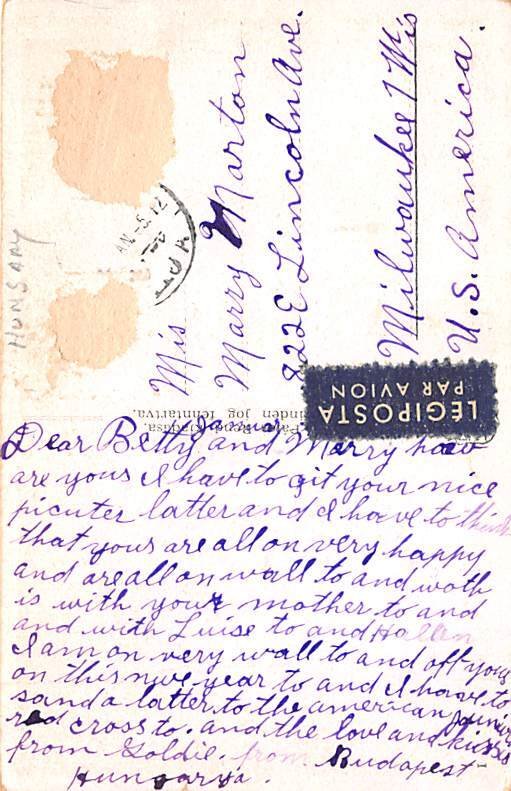 HUNGARY
Mis
Marry Marton
822 E Lincoln Ave.
Milwaukee 7 Wis
U.S. America.
LÉGIPOSTA
PAR AVION
minden jog fenntartva.
Dear Betty and Marry how
are yous I have to git your nice
picuter latter and I have to think
that yous are all on very happy
and are all on wall to and woth
is with your mother to and
and with Luise to and Hallen
I am on very wall to and off yous
on this nwe year to and I have to
sand a latter to the american junir
red cross to. and the love and kisses
from Goldie. from Budapest
Hungarya.